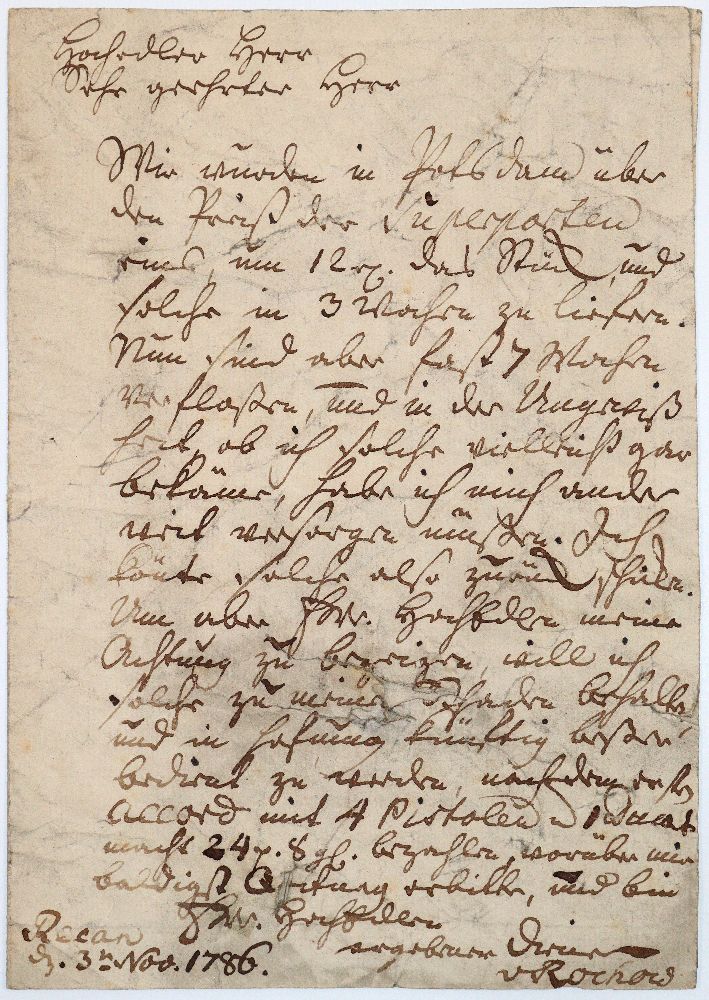 Hochedler Herr
Sehr geehrter Herr
Wir wurden in Potsdam über
den Preiß der Supraporten
eins, um 12 rℓ. das Stück, und
solche in 3 Wochen zu liefern.
Nun sind aber fast 7 Wochen
verfloßen, und in der Ungewiß
heit, ob ich solche vielleicht gar
bekäme, habe ich mich ander
weit versorgen müßen. Ich
könte solche also zurück schicken.
Um aber Ew. HochEdlen meine
Achtung zu bezeigen, will ich
solche zu meinem Schaden behalten,
und in Hofnung künftig beßer
bedient zu werden, nach dem ersten
Accord mit 4 Pistolen u 1 Ducat
macht 24 r. 8 gl. bezahlen, worüber mir
baldigst Quitung erbitte, und bin
Ew. HochEdlen
Recan
d. 3n Nov. 1786.
ergebener Diener
vRochow